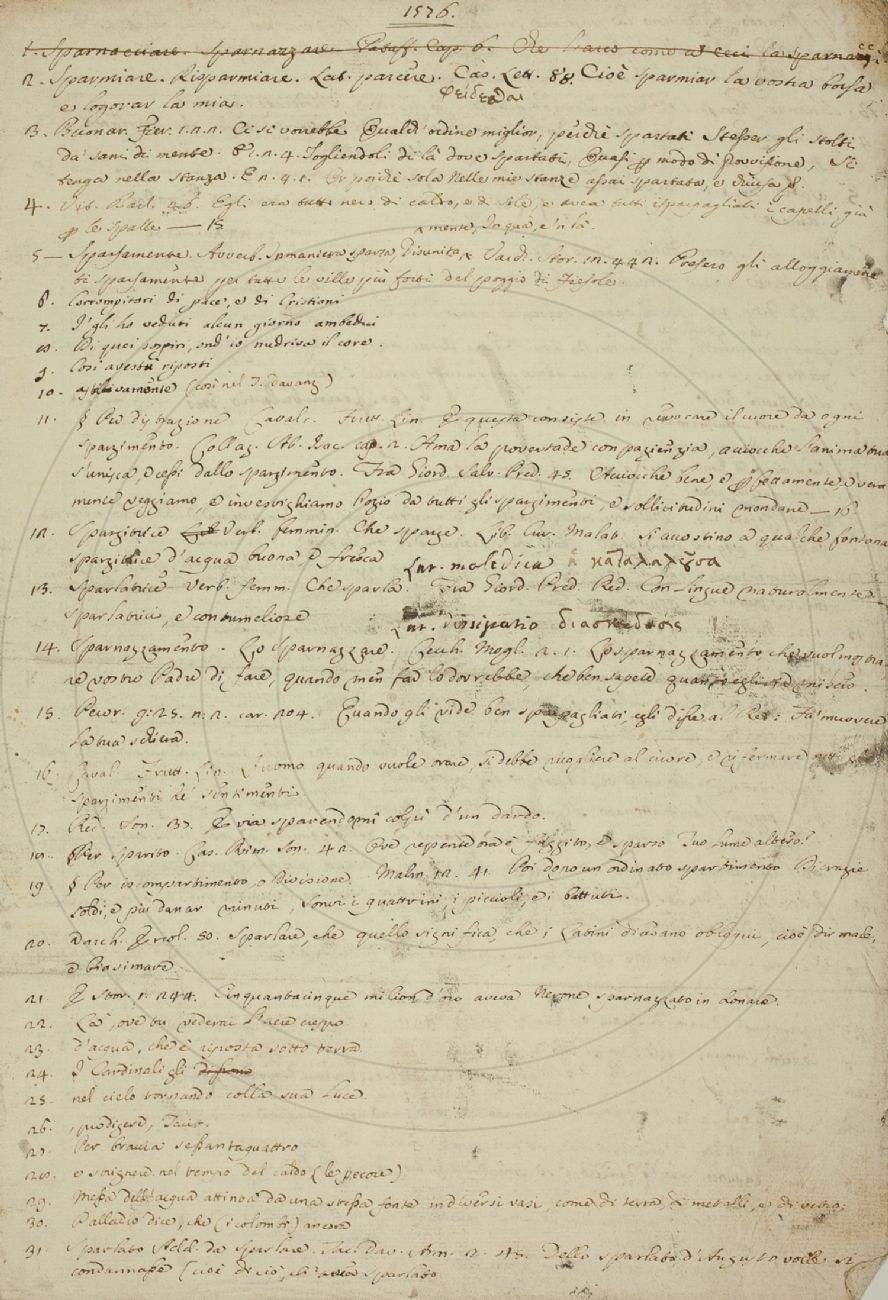 1576.
1. Sparnacciare. Sparnazzare. Pataff. Cap. 6. come a' ceci la sparnacci
2. Sparmiare. Risparmiare. Lat. parcere. Cas. Lett. 88. Cioè sparmiar la vostra borsa
φείδεσθαι
e logorar la mia.
3. Buonar. Fier. 1. 2. 2. Ci si vorrebbe qualch' ordine miglior, perchè spartati Stesser gli stolti
da' sani di mente. E 2. 4. Togliendoli di là dove spartati, Quasi modo di provvisione, Si
tenga nella stanza. E 4. Or poichè sola Nelle mie stanze assai spartata, e
4. Egli era tutto nero di caldo, e di sole, e avea tutti isparpagliati i capelli giù
le spalle — 15 mente, In quà, e 'n là.
5 — Sparsamente. Avverb. In maniera sparsa, Disunita, Varch. Stor. 12. 442. Presero gli alloggiamenti
sparsamente per tutte le ville più forti del poggio di Fiesole.
6. Corrompitori di pace, e di Cristiani
7. I' gli ho veduti alcun giorno ambedui
8. Di quei sospiri, ond' io nudriva il core.
9. Così avestù riposti
10. (così nel T. Davanz.)
11. § Per distrazione Cavalc. Frutt. Lin. E questa consiste in revocare il cuore da ogni
spargimento. Collaz. Ab. Isac. cap. 2. Ama la povertade con pazienzia, acciocchè l'anima tua
s'unisca, e cessi dallo spargimento. Fra Giord. Salv. Pred. 45. Acciocchè bene, e perfettamente e vera
mente veggiamo, e investighiamo da tutti gli spargimenti, e sollicitudini mondane — 16
12. Spargitrice Verb. femmin. Che sparge. Lib. Cur. Malatt. Si accostino a qualche fontana
spargitrice d'acqua buona e fresca
Lat. maledica
13. Sparlatrice Verb. femm. Che sparla. Fra Giord. Pred. Red. Con lingue naturalmente
sparlatrici, e contumeliose
Lat. dissipatio
14. Sparnazzamento. Lo Sparnazzare. Cecch. Mogl. 2. 1. Lo sparnazzamento che vuol mostra-
re vostro Padre di fare, quando men far lo dovrebbe, che ben sapete quant' egli sia misero.
15. Pecor. g. 25. n. 2. car. 204. Quando gli vide ben sparpagliati, egli disse al Re: Fa' muovere
la tua schiera.
16. Caval. Frutt. Lin. L'uomo quando vuole orare, si debbe racogliere al cuore, e rifermare
spargimenti de' sentimenti.
17. Red. Son. 37. E via sparendo mi colpì d'un dardo.
18. § Per Sparito. Cas. Rim. Son. 42. Ove repente ora è fuggito, e sparso Tuo lume altero?
19 § Per iscompartimento, o Divisione. Malm. 12. 41. Poi dopo un ordinato spartimento Di crazie
soldi, e più danar minuti, Sonvi i quattrini, i piccioli, e i battuti.
20. Varch. Ercol. 50. Sparlare, che quello significa, che i Latini dicevano obloqui, cioè dir male,
e biasimare.
21. E Stor. 1. 244. Cinquantacinque milion d'oro aveva Nerone sparnazzato in donare.
22. Là, ove tu vederai l'aere crespo
23. d'acqua, che è riposta sotto terra
24. I Cardinali gli
25. nel cielo tornando colla sua Luce
26. , prodigere, Tacit.
27. Per braccia sessantaquattro
28. e strignere nel tempo del caldo (le pecore)
29. Messa dell'acqua attinta da una stessa fonte in diversi vasi, come di terra, di metalli, e di vetro;
30. Palladio dice, che (i colombi) ancora
31. Sparlato Add. da Sparlare. Tac. Dav. Ann. 2. 45. Dello sparlato d'Augusto volle si
condannasse (cioè di ciò, ch' avea sparlato